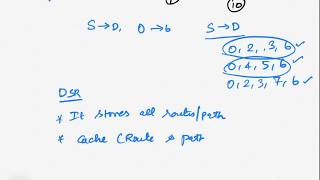 S→D, 0→6 S→D
0, 2, 3, 6 ✓
0, 4, 5, 6 ✓
0, 2, 3, 7, 6 ✓
DSR
* It stores all routes/path
* Cache (Route & path